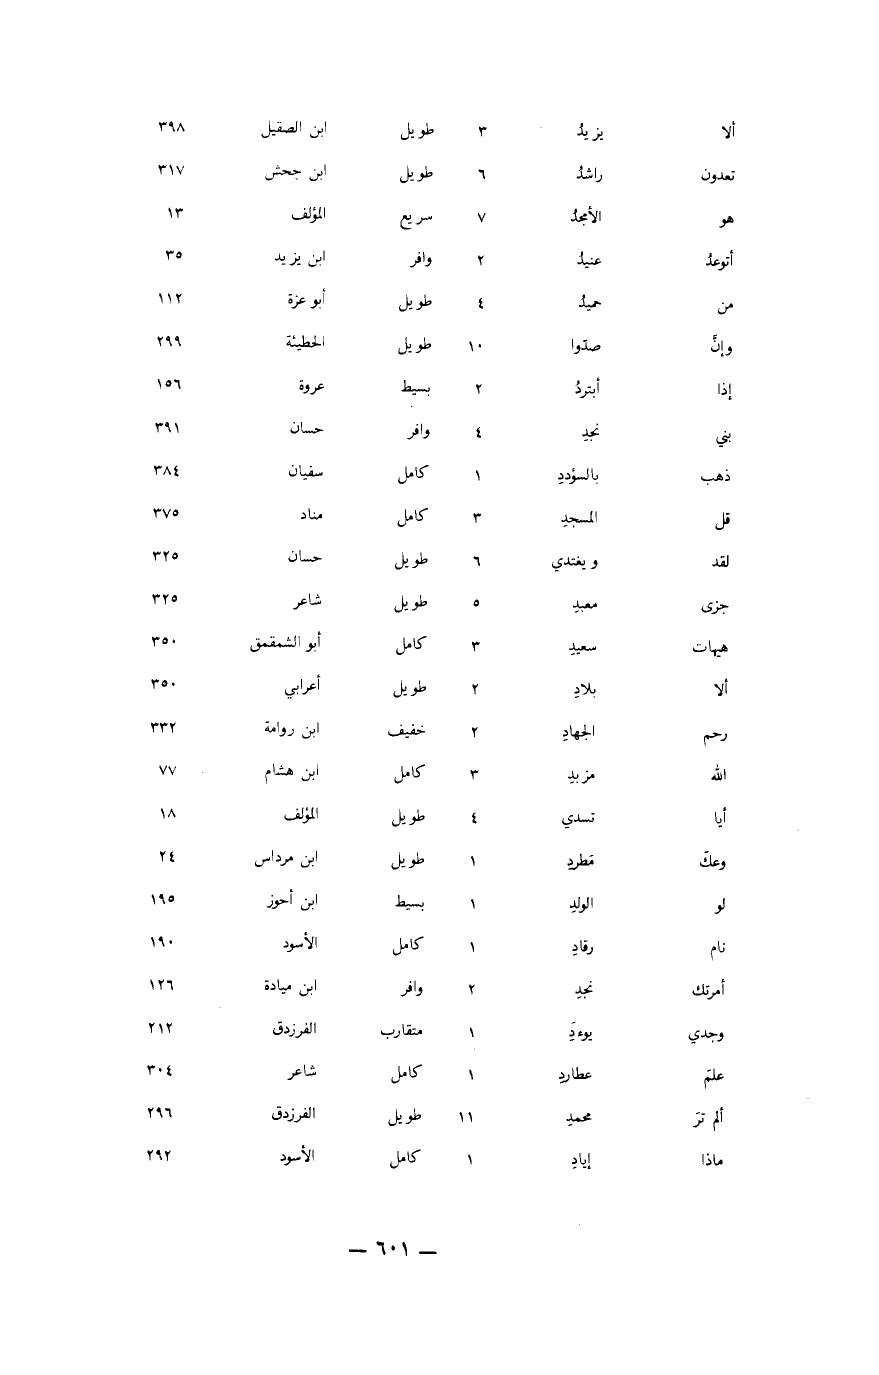 ألا يزيدُ ٣ طويل ابن الصقيل ٣٩٨
تعدون راشدُ ٦ طويل ابن جحش ٣١٧
هو الأمجدُ ٧ سريع المؤلف ١٣
أتوعدُ عنيدُ ٢ وافر ابن يزيد ٣٥
من حميدُ ٤ طويل أبو عزة ١١٢
وإنَّ صدّوا ١٠ طويل الحطيئة ٢٩٩
إذا أبتردُ ٢ بسيط عروة ١٥٦
بني نجدِ ٤ وافر حسان ٣٩١
ذهب بالسؤددِ ١ كامل سفيان ٣٨٤
قل المسجدِ ٣ كامل مناد ٣٧٥
لقد ويغتدي ٦ طويل حسان ٣٢٥
جزى معبدِ ٥ طويل شاعر ٣٢٥
هيهات سعيدِ ٣ كامل أبو الشمقمق ٣٥٠
ألا بلادِ ٢ طويل أعرابي ٣٥٠
رحم الجهادِ ٢ خفيف ابن رواحة ٣٣٢
الله مزبدِ ٣ كامل ابن هشام ٧٧
أيا تسدي ٤ طويل المؤلف ١٨
وعكّ مَطردِ ١ طويل ابن مرداس ٢٤
لو الولدِ ١ بسيط ابن أحوز ١٩٥
نام رقادِ ١ كامل الأسود ١٩٠
أمرتك نجدِ ٢ وافر ابن ميادة ١٢٦
وجدي يوءدَِ ١ متقارب الفرزدق ٢١٢
علمَ عطاردِ ١ كامل شاعر ٣٠٤
ألم ترَ محمدِ ١١ طويل الفرزدق ٢٩٦
ماذا إيادِ ١ كامل الأسود ٢٩٢
— ٦٠١ —